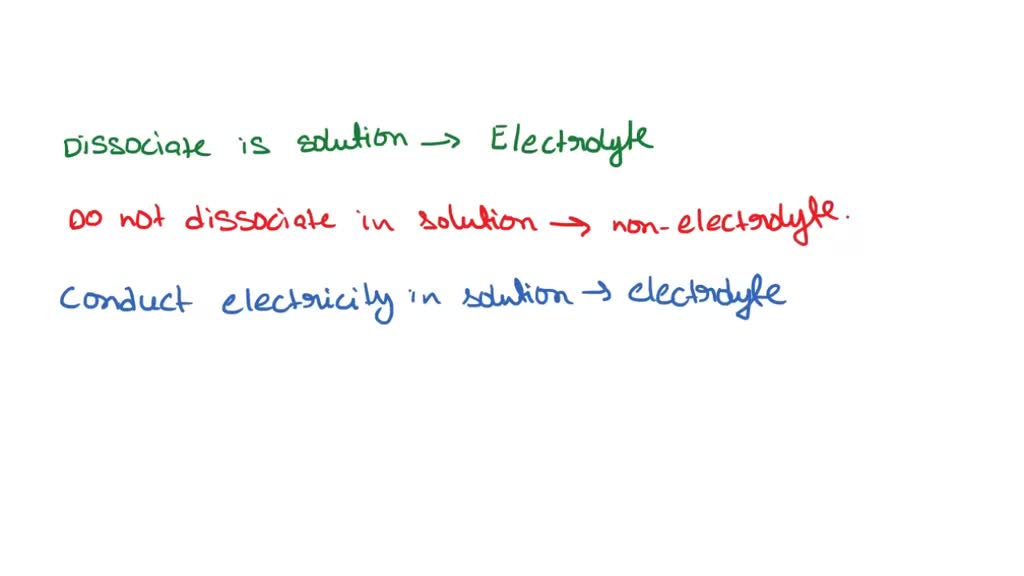 Dissociate is solution → Electrolyte
Do not dissociate in solution → non-electrolyte.
Conduct electricity in solution → electrolyte